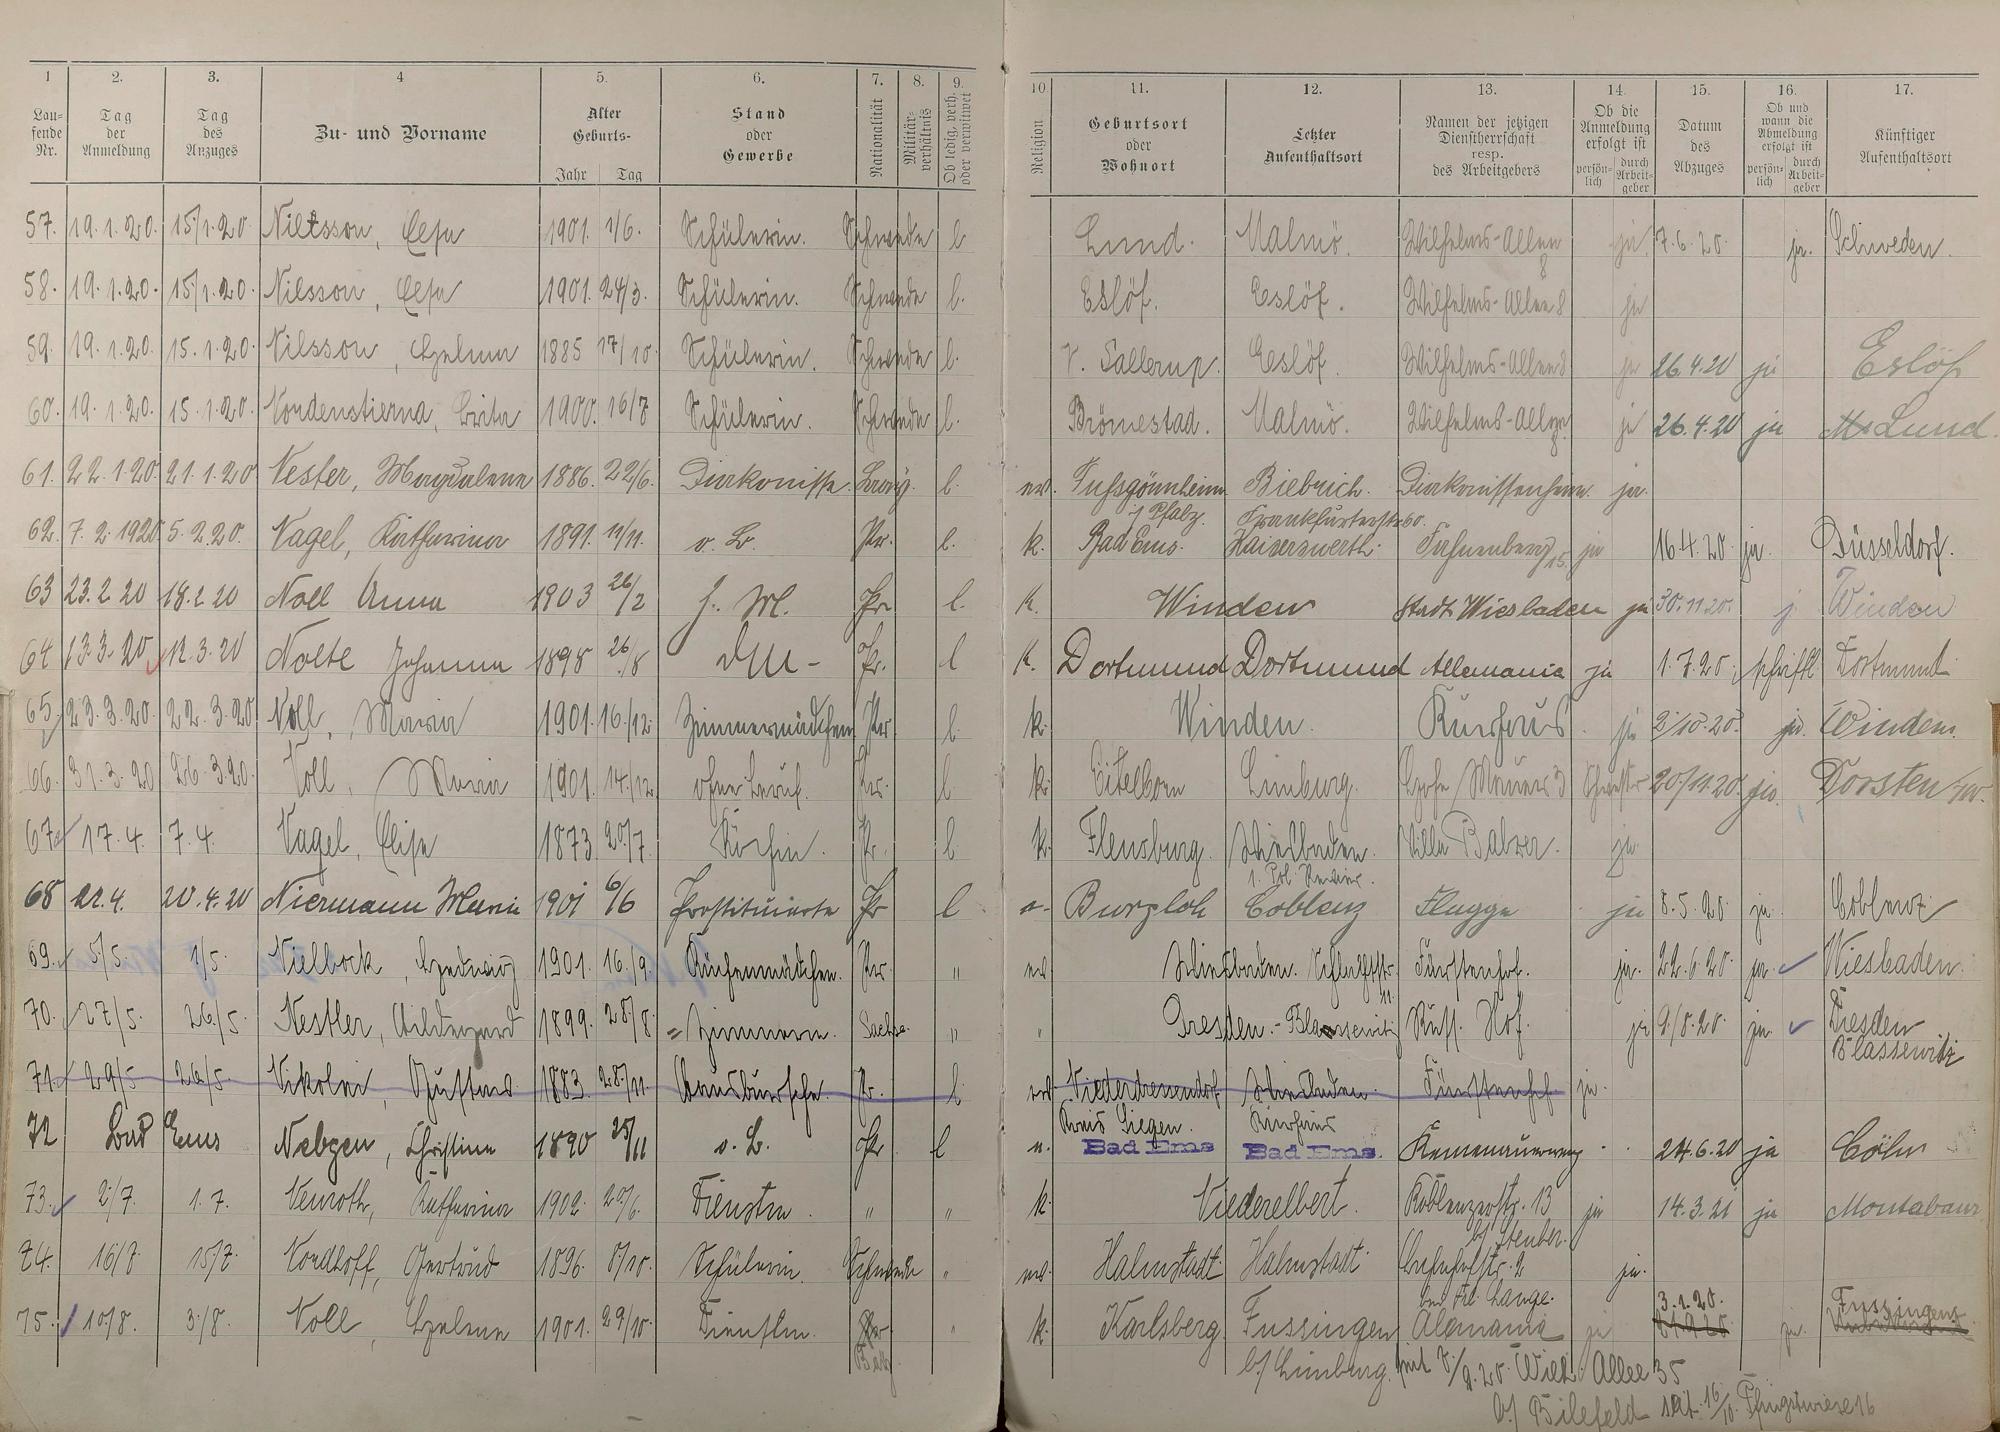 1 2. 3. 4 5. 6. 7. 8. 9. 10 11. 12. 13. 14. 15. 16. 17.
Lau-
fende
Nr.
Tag
der
Anmeldung
Tag
des
Anzuges
Zu- und Vorname
Alter
Geburts-
Jahr Tag
Stand
oder
Gewerbe
Nationalität
Militär-
verhältnis
Ob ledig, verh.
oder verwitwet
Religion
Geburtsort
oder
Wohnort
Letzter
Aufenthaltsort
Namen der jetzigen
Dienstherrschaft
resp.
des Arbeitgebers
Ob die
Anmeldung
erfolgt ist
persön-
lich
durch
Arbeit-
geber
Datum
des
Abzuges
Ob und
wann die
Abmeldung
erfolgt ist
persön-
lich
durch
Arbeit-
geber
Künftiger
Aufenthaltsort
57. 19.1.20. 15/1.20. Nilsson, Elsa 1901. 1/6. Schülerin. Schwede l. Lund. Malmö. Wilhelms-Allee 8 ja. 7.6.20. ja. Schweden.
58. 19.1.20. 15/1.20. Nilsson, Elsa 1901. 24/3. Schülerin. Schwede l. Eslöf. Eslöf. Wilhelms-Allee 8 ja
59. 19.1.20. 15.1.20. Nilsson, Helma 1885 17/10. Schülerin. Schwede l. V. Sallerup. Eslöf. Wilhelms-Allee 8 ja 26.4.20 ja Eslöf
60. 19.1.20. 15.1.20. Nordenstierna, Brita 1900. 16/7 Schülerin. Schwede l. Brömestad. Malmö. Wilhelms-Allee 8. ja 26.4.20 ja Lund.
61. 22.1.20. 21.1.20. Nester, Magdalena 1886. 22/6. Diakonisse. l. ev. Fußgönnheim Biebrich. Diakonissenheim. ja.
i/Pfalz. Frankfurterstr. 60.
62. 7.2.1920 5.2.20. Nagel, Katharina 1891. 11/11. o. B. Pr. l. k. Bad Ems. Kaiserswerth. 15. ja 16.4.20. ja. Düsseldorf.
63 23.2.20 18.2.20 Noll Anna 1903 26/2 Pr. l. K. Winden Stadt Wiesbaden ja 30.11.20. j. Winden
64 13.3.20 12.3.20 Nolte Johanna 1898 26/8 Pr. l K. Dortmund Dortmund Allemania ja 1.7.20. schriftl. Dortmund
65. 23.3.20. 22.3.20 Noll, Maria 1901. 16./12. Zimmermädchen Pr. l. k. Winden. Kurhaus. ja 2/10.20. ja. Winden.
66. 31.3.20 26.3.20. Noll, Maria 1901. 14/12. ohne Beruf. Pr. l k. Eitelborn Limburg. 20/11.20. ja. Dorsten
67. 17.4. 7.4. Nagel, Elise 1873 20/7. Köchin. Pr. l. k. Flensburg. Wiesbaden. Villa Balzer. ja
68 22.4. 20.4.20 Niermann Maria 1901 6/6 Prostituierte Pr l Burgloh Coblenz Flugge ja 8.5.20 ja. Coblenz
69. 5/5. 1/5. Nielbock, Hedwig 1901. 16./9. Küchenmädchen. Pr. " ev Wiesbaden. Fürstenhof. ja. 22.6.20. ja. Wiesbaden.
70. 27/5. 26/5. Nestler, Hildegard 1899. 28/8. Zimmerm. Sachse. " " Dresden.-Blassewitz Russ. Hof. ja 9/8.20. ja. Dresden
Blassewitz
71. 29/5 26/5. Nikolai, Gustav 1883. 28/11. Hausbursche. Pr. l. ev. Niederdresselndorf Wiesbaden. Fürstenhof. ja.
Kreis Siegen. Kurhaus
72 Bad Ems Nebgen, Christine 1890 25/11 o. B. Pr l Bad Ems Bad Ems. Kemenauerweg 24.6.20 ja Cöln
73. 2/7. 1.7. Neuroth, Katharina 1902. 20/6. Dienstm. " " k. Niederelbert. Koblenzerstr. 13 ja 14.3.21 ja Montabaur
b/ Steuber.
74. 16/7 15/7 Nordhoff, Gertrud 1896. 8/10. Schülerin. Schwede " ev. Halmstadt. Halmstadt. Bahnhofstr. 2 ja.
bei Frl. Lange.
75. 10/8. 3/8. Noll, Helene 1901. 29/10. Dienstm. " k. Karlsberg. Fussingen Alemania ja 3.1.20. ja. Fussingen
b/ Limburg. seit 7/9.20. Wilh. Allee 35
b/ Bilefeld seit 16/10. Pfingstwiese 16